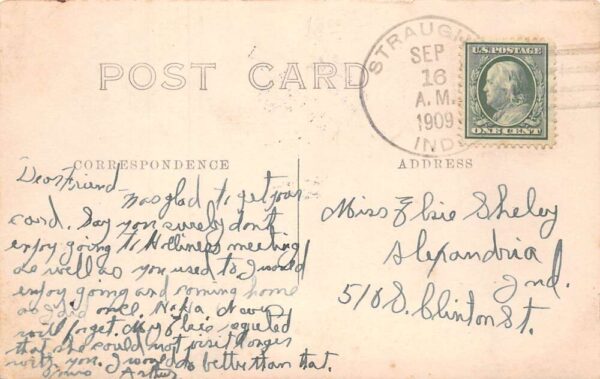 POST CARD
STRAUGHN
SEP
16
A.M.
1909
IND.
U.S. POSTAGE
ONE CENT
CORRESPONDENCE
ADDRESS
Dear Friend
Was glad to get your
card. Say you surely don't
enjoy going to Holliness meeting
as well as you used to I would
enjoy going and coming home
as I did once.
will forget. My
that she could not visit longer
with you. I would do better than that.
Yours Arthur
Miss Elsie Sheley
Alexandria
Ind.
510 S. Clinton St.